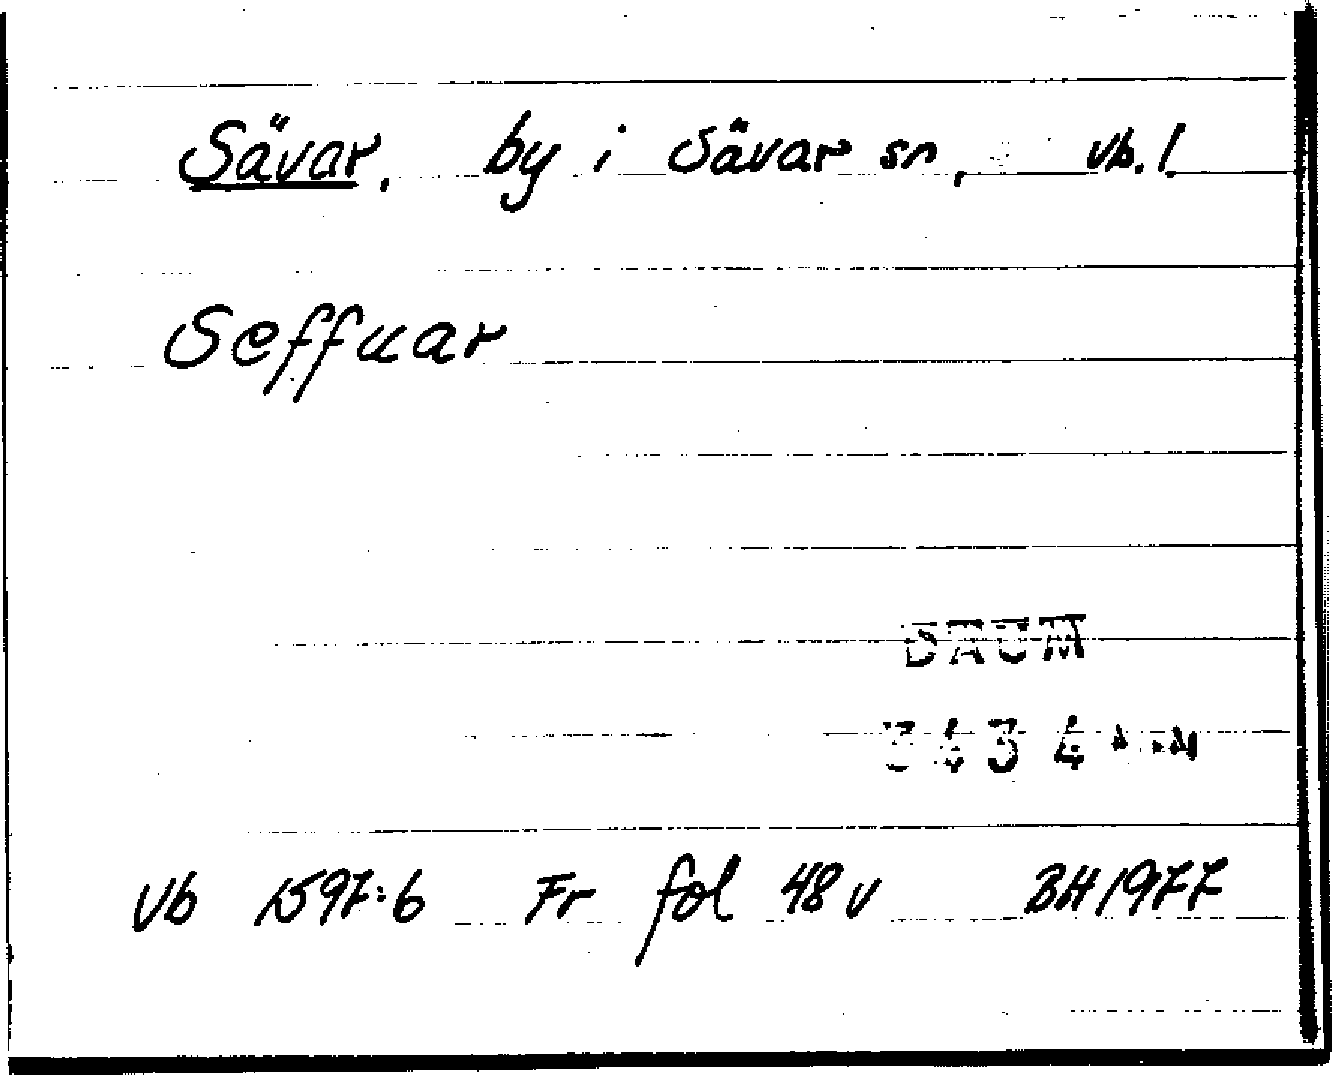 Sävar, by i Sävar sn, vb. l.
Seffuar
DAUM
3434
Vb 1597:6 Fr fol 48 v BH 1977